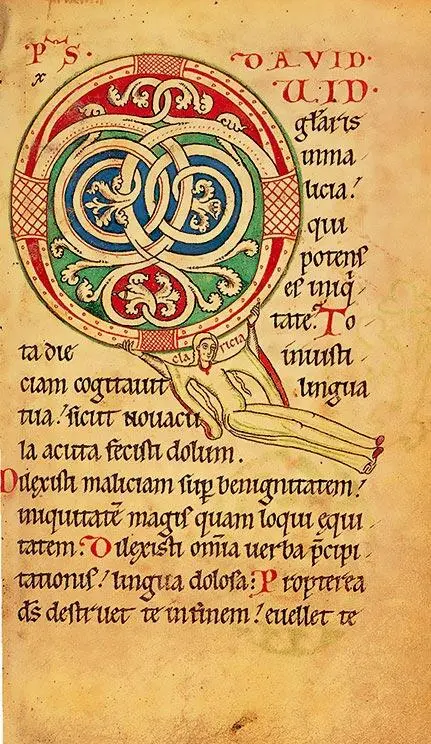 PS. DAVID.
x UID.
gl̃aris
inma
licia?
qui
potens
es iniq̃
tate? To
ta die iniusti
ciam cogitauit lingua
tua? sicut nouacu
la acuta fecisti dolum.
Dilexisti maliciam sup benignitatem?
iniquitatẽ magis quam loqui equi
tatem? Dilexisti om̃ia uerba p̃cipi
tationis? lingua dolosa? Propterea
ds̃ destruet te in finem? euellet te
cla ricia